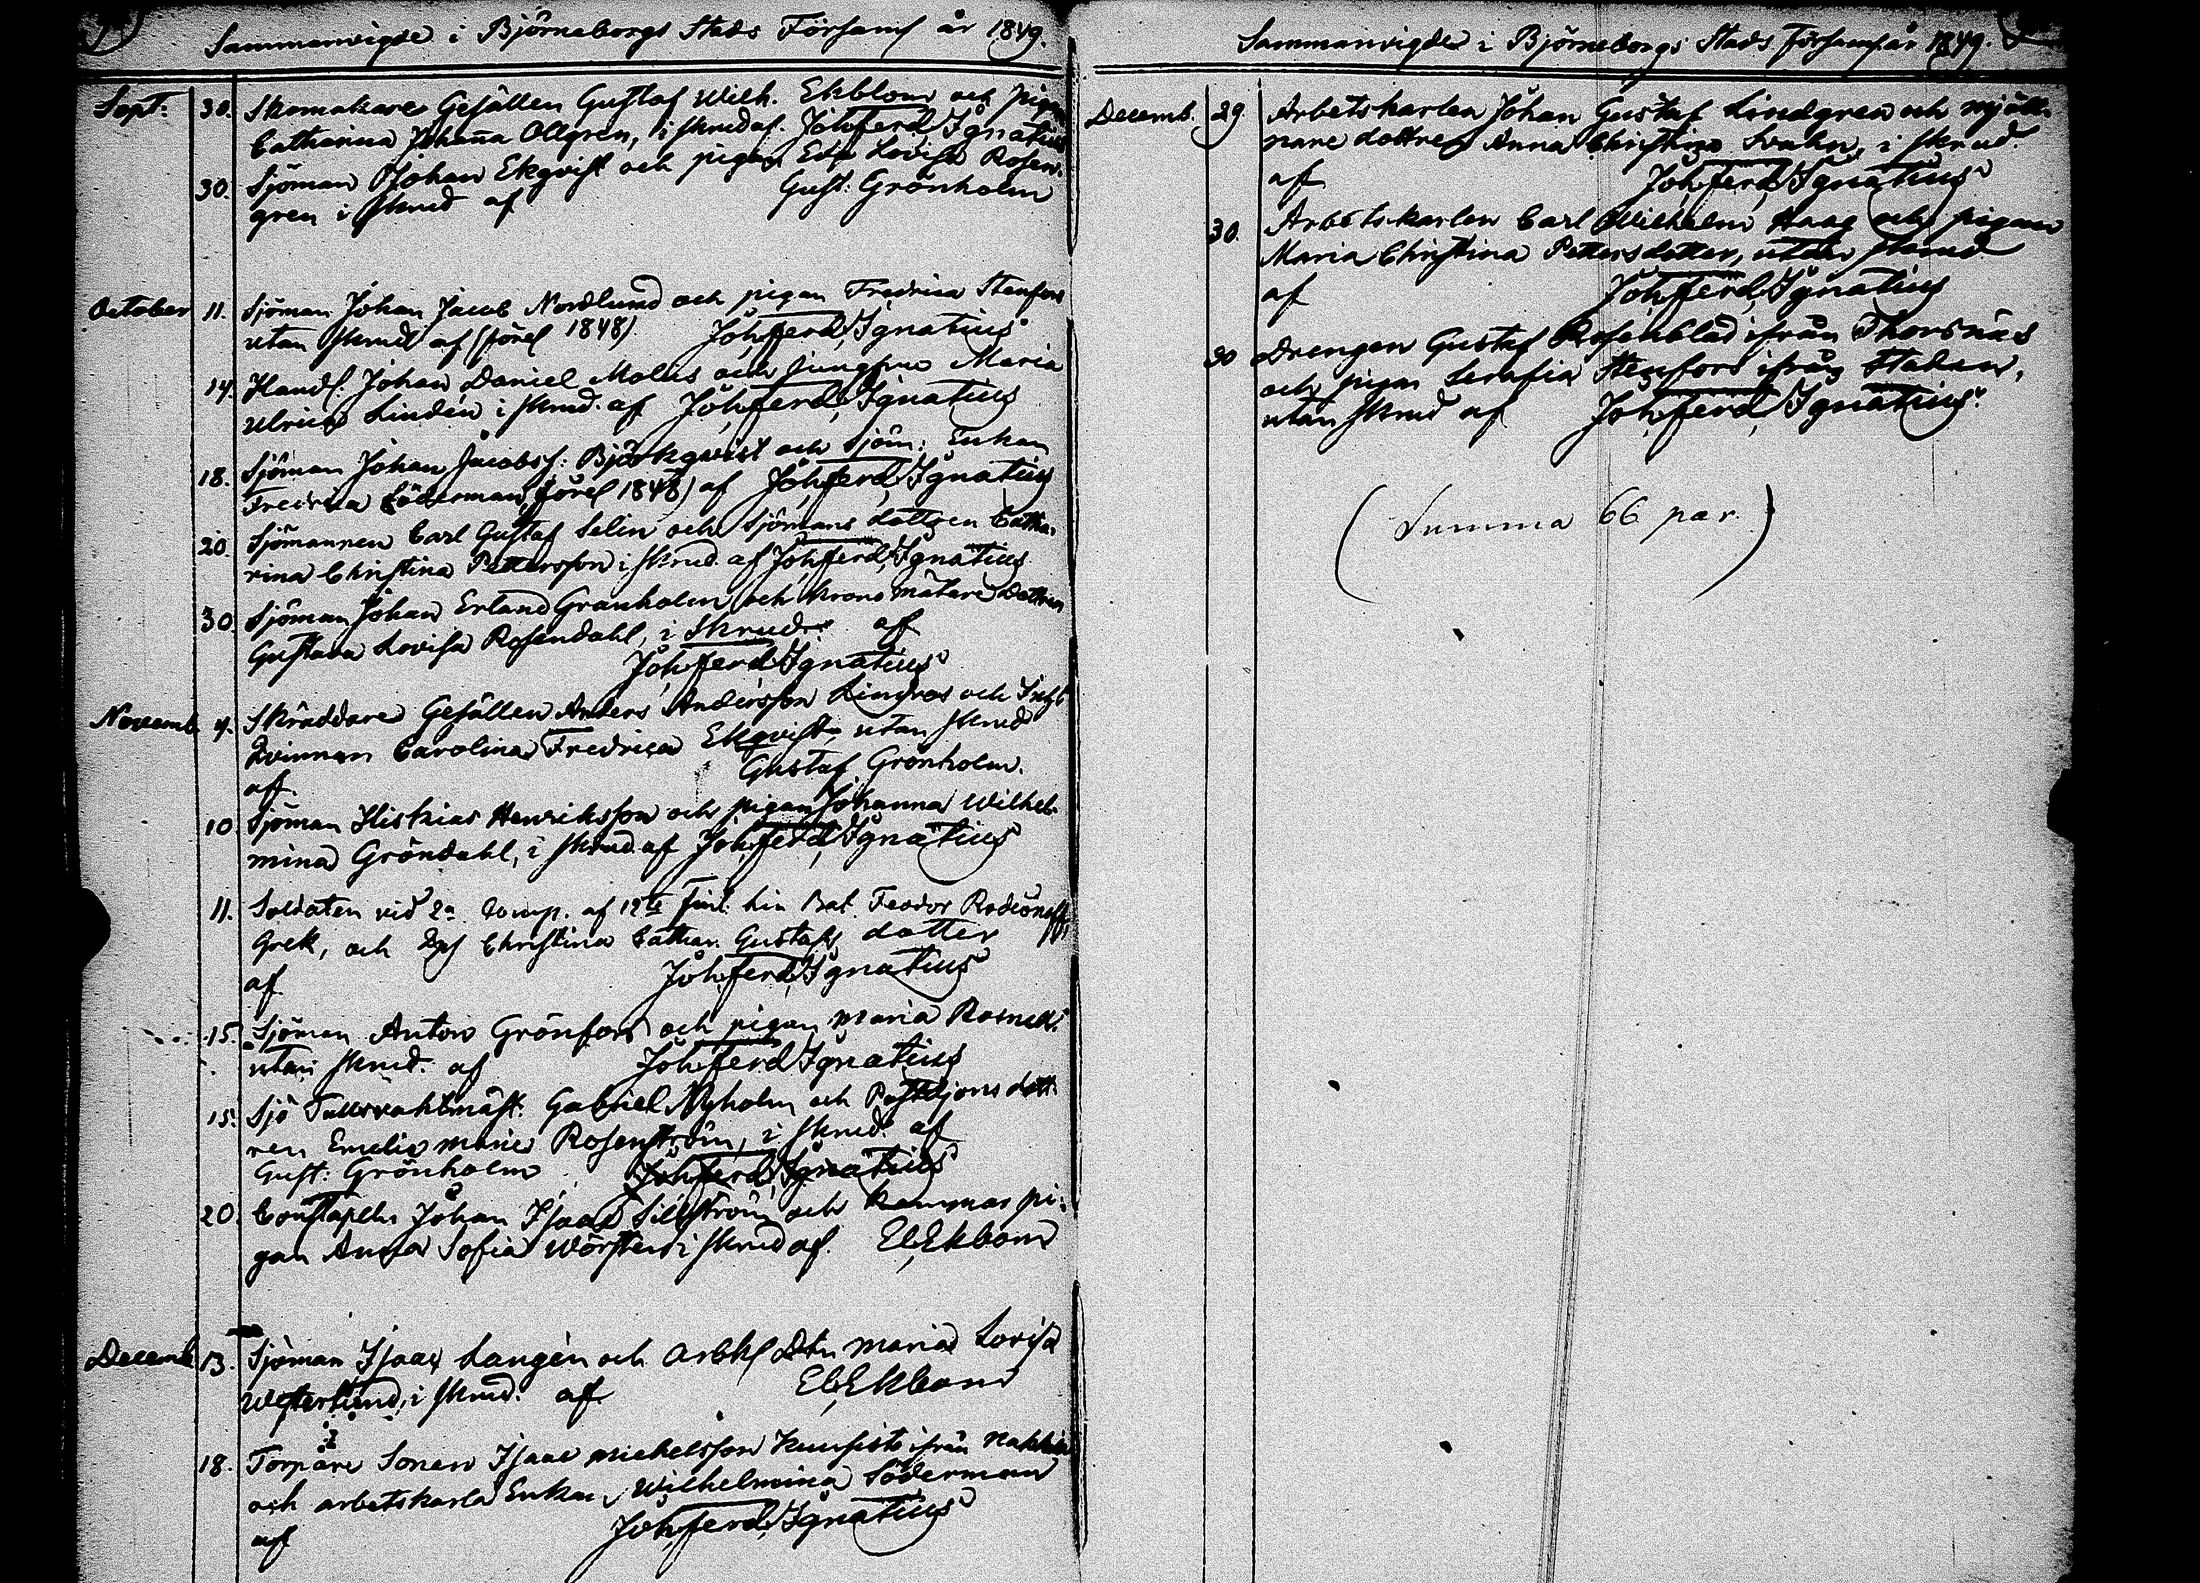 Sammanvigde i Björneborgs Stads Församl år 1849.
Sept: 30. Skomakare Gesällen Gustaf Wilh. Ekblom och pigan
Catharina Johanna Ollgren, i skrud af. Joh Ferd Ignatius
30. Sjöman Johan Ekqvist och pigan Eva Lovisa Rosen-
gren i skrud af Gust: Grönholm
October 11. Sjöman Johan Jacob Nordlund och pigan Fredrica Stenfors
utan skrud af (förel 1848) Joh Ferd Ignatius
14. Handl. Johan Daniel Molus och Jungfru Maria
Ulrica Lindén i skrud. af Joh Ferd Ignatius
18. Sjöman Johan Jacobss: Björkqvist och Sjöm: Enkan
Fredrica Söderman, (förel 1848) af Joh Ferd Ignatius
20. Sjömannen Carl Gustaf Selin och Sjömans dottren Catha-
rina Christina Pettersson i skrud. af Joh Ferd Ignatius
30. Sjöman Johan Erland Granholm och Krono mätare Dottren
Gustava Lovisa Rosendahl, i Skrud. af
Joh Ferd Ignatius
Novemb. 4. Skräddare Gesällen Anders Andersson Lindros och
Qvinnan Carolina Fredrica Ekqvist, utan skrud
af. Gustaf Grönholm.
10 Sjöman Hiskias Henriksson och pigan Johanna Wilhel-
mina Gröndahl, i skrud. af Joh Ferd Ignatius
11. Soldaten vid 2a Comp. af 12te Finl. Lin Bat. Feodor Rodionoff,
Grek, och Christina Cathar. Gustafs dotter
af Joh Ferd Ignatius
15. Sjöman Anton Grönfors och pigan Maria
utan skrud. af Joh Ferd Ignatius
15. Sjö Tullsvaktmäst. Gabriel Nyholm och Postiljons dott-
ren Emelie Marie Rosenström, i skrud. af
Gust: Grönholm Joh Ferd Ignatius
20. Constapeln Johan Isaac Sillström och Kammar pi-
gan Anna Sofia Wörsten i skrud af. Ekbom
Decemb. 13. Sjöman Isaac Langén och Arbkl Dtn Maria Lovisa
Westerlund, i skrud. af. Ekbom
18. Torpare Sonen Isaac Michelsson Kuusisto ifrån
och arbetskarls Enkan Wilhelmina Söderman
af Joh Ferd Ignatius
Sammanvigde i Björneborgs Stads Församl. år 1849.
Decemb. 29. Arbetskarlen Johan Gustaf Lindgren och mjöll-
nare dottren Anna Christina Svahn, i skrud.
af Joh Ferd Ignatius
30. Arbetskarlen Carl Wilhelm Haag och pigan
Maria Christina Pettersdotter, utan skrud
af Joh Ferd Ignatius
30 Drengen Gustaf Rosenblad ifrån Thorsnäs
och pigan Serafia Stenfors ifrån Staden,
utan skrud af Joh Ferd Ignatius.
(Summa 66 par.)